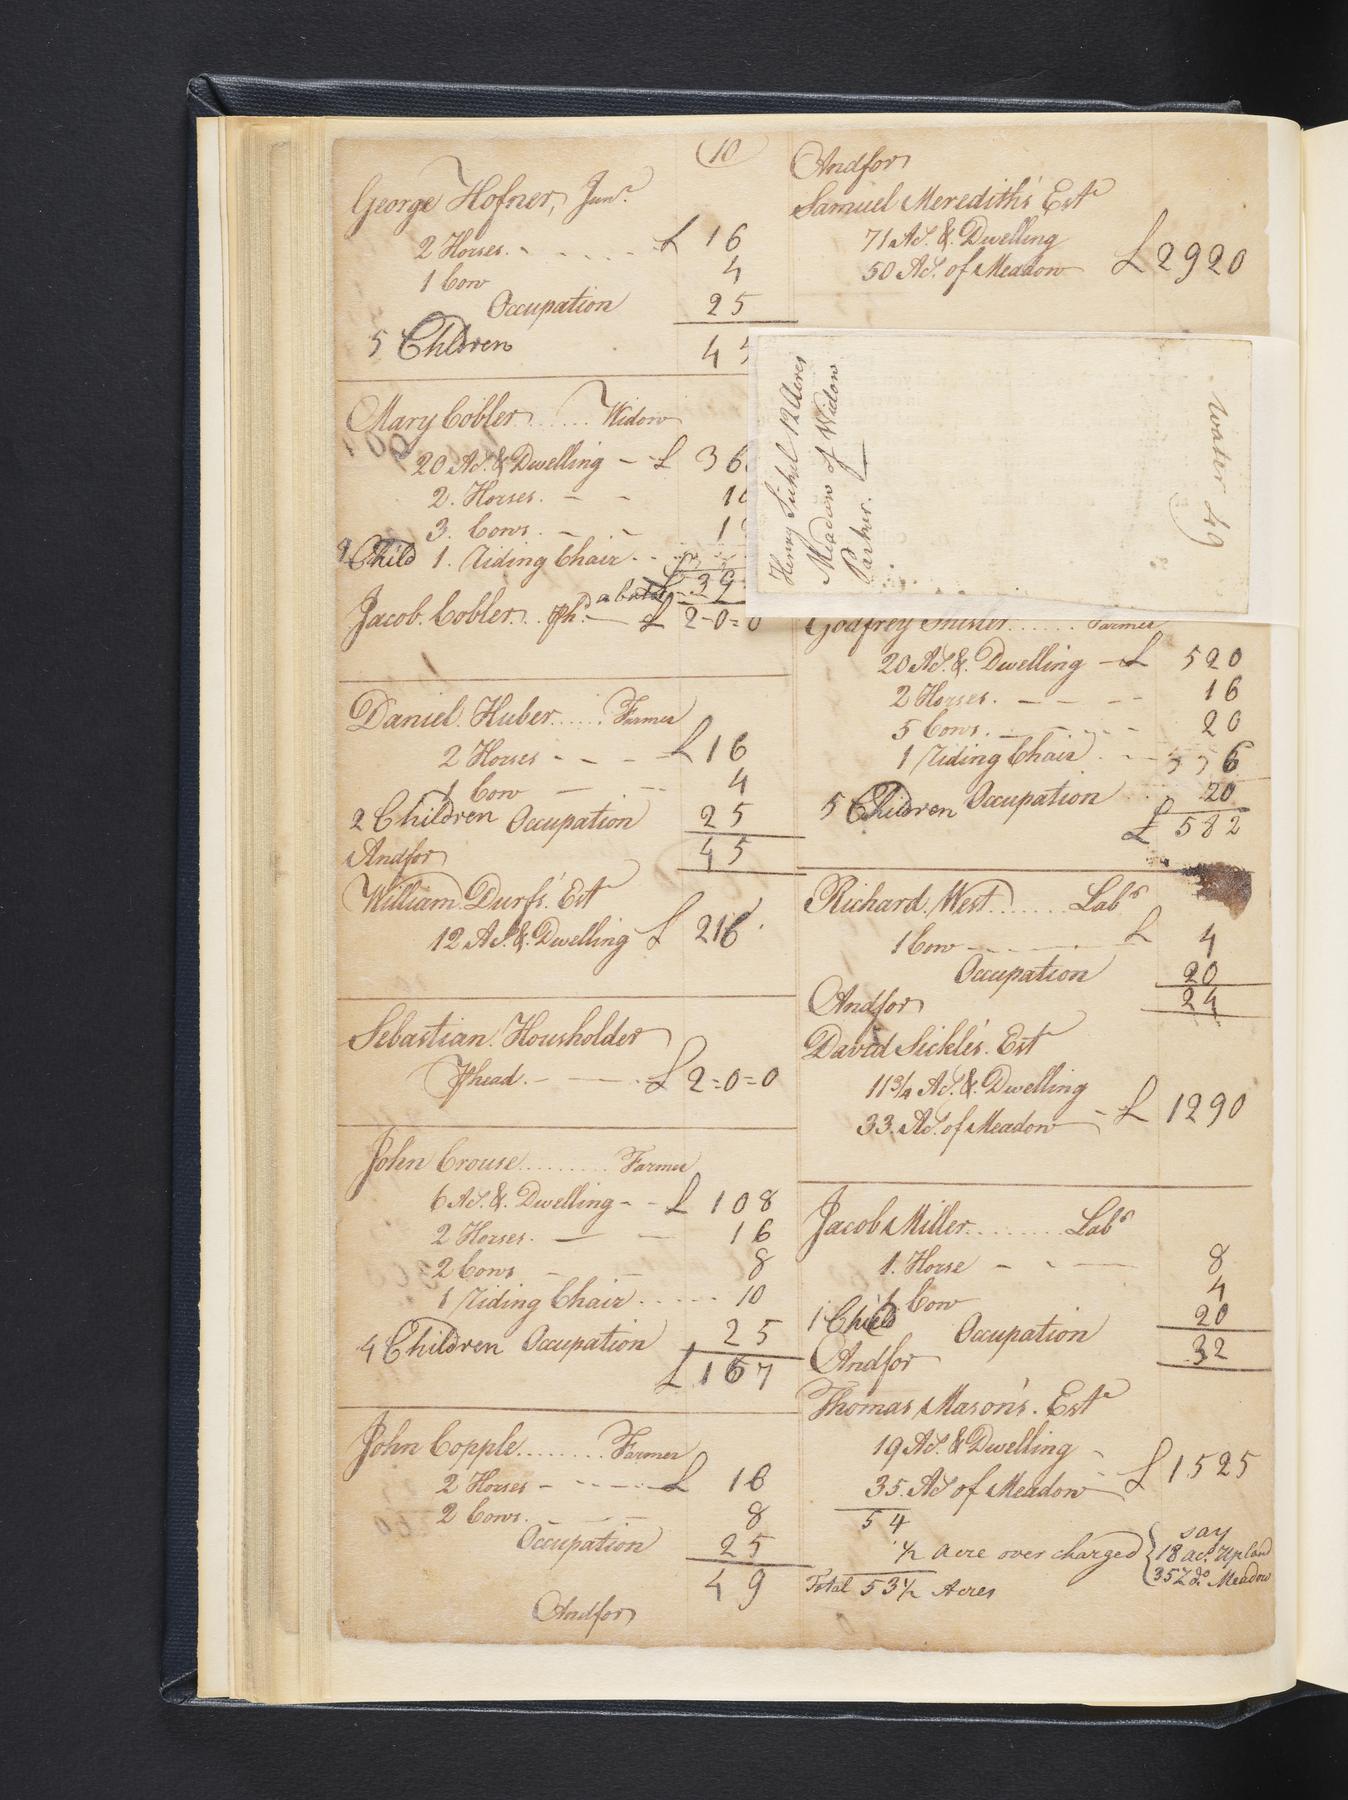 10
George Hofner, Junr.
2 Horses. - - - - £ 16
1 Cow 4
Occupation 25
5 Children 45
Mary Cobler ...... Widow
20 As. & Dwelling - £ 36
2. Horses. - - 16
3. Cows. - - 1
Child 1. Riding Chair - -
£ 39
Jacob Cobler .. Phd. abated £ 2-0=0
Daniel Huber ..... Farmer
2 Horses - - - £ 16
1 Cow - - 4
2 Children Occupation 25
45
Andfor
William Durfs. Est
12 As. & Dwelling £ 216
Sebastian Housholder
Phead. - - £ 2=0=0
John Crouse ........ Farmer
6 As. & Dwelling - - £ 108
2 Horses. - - 16
2 Cows - - 8
1 Riding Chair ..... 10
4 Children Occupation 25
£ 167
John Copple ....... Farmer
2 Horses - - - - £ 16
2 Cows. - - 8
Occupation 25
49
Andfor
Andfor
Samuel Meredith's Este
71 As. & Dwelling
50 As. of Meadow £ 2920
Henry Sickel 12 Acres
Meadow of Widow
Parker.
water 49
Godfrey Shisler ...... Farmer
20 As. & Dwelling - £ 520
2 Horses. - - - 16
5 Cows. - - - 20
1 Riding Chair - - 6
5 Children Occupation 20
£ 582
Richard West ....... Labr
1 Cow - - - £ 4
Occupation 20
24
Andfor
David Sickle's. Est
11 3/4 As. & Dwelling
33. As. of Meadow - £ 1290
Jacob Miller ........ Labr
1. Horse - - - 8
1 Cow 4
1 Child Occupation 20
32
Andfor
Thomas Mason's. Este
19 As. & Dwelling -
35. As of Meadow - £ 1525
54
1/2 acre over charged { say
18 acs. Upland
35 1/2 do. Meadow
Total 53 1/2 Acres